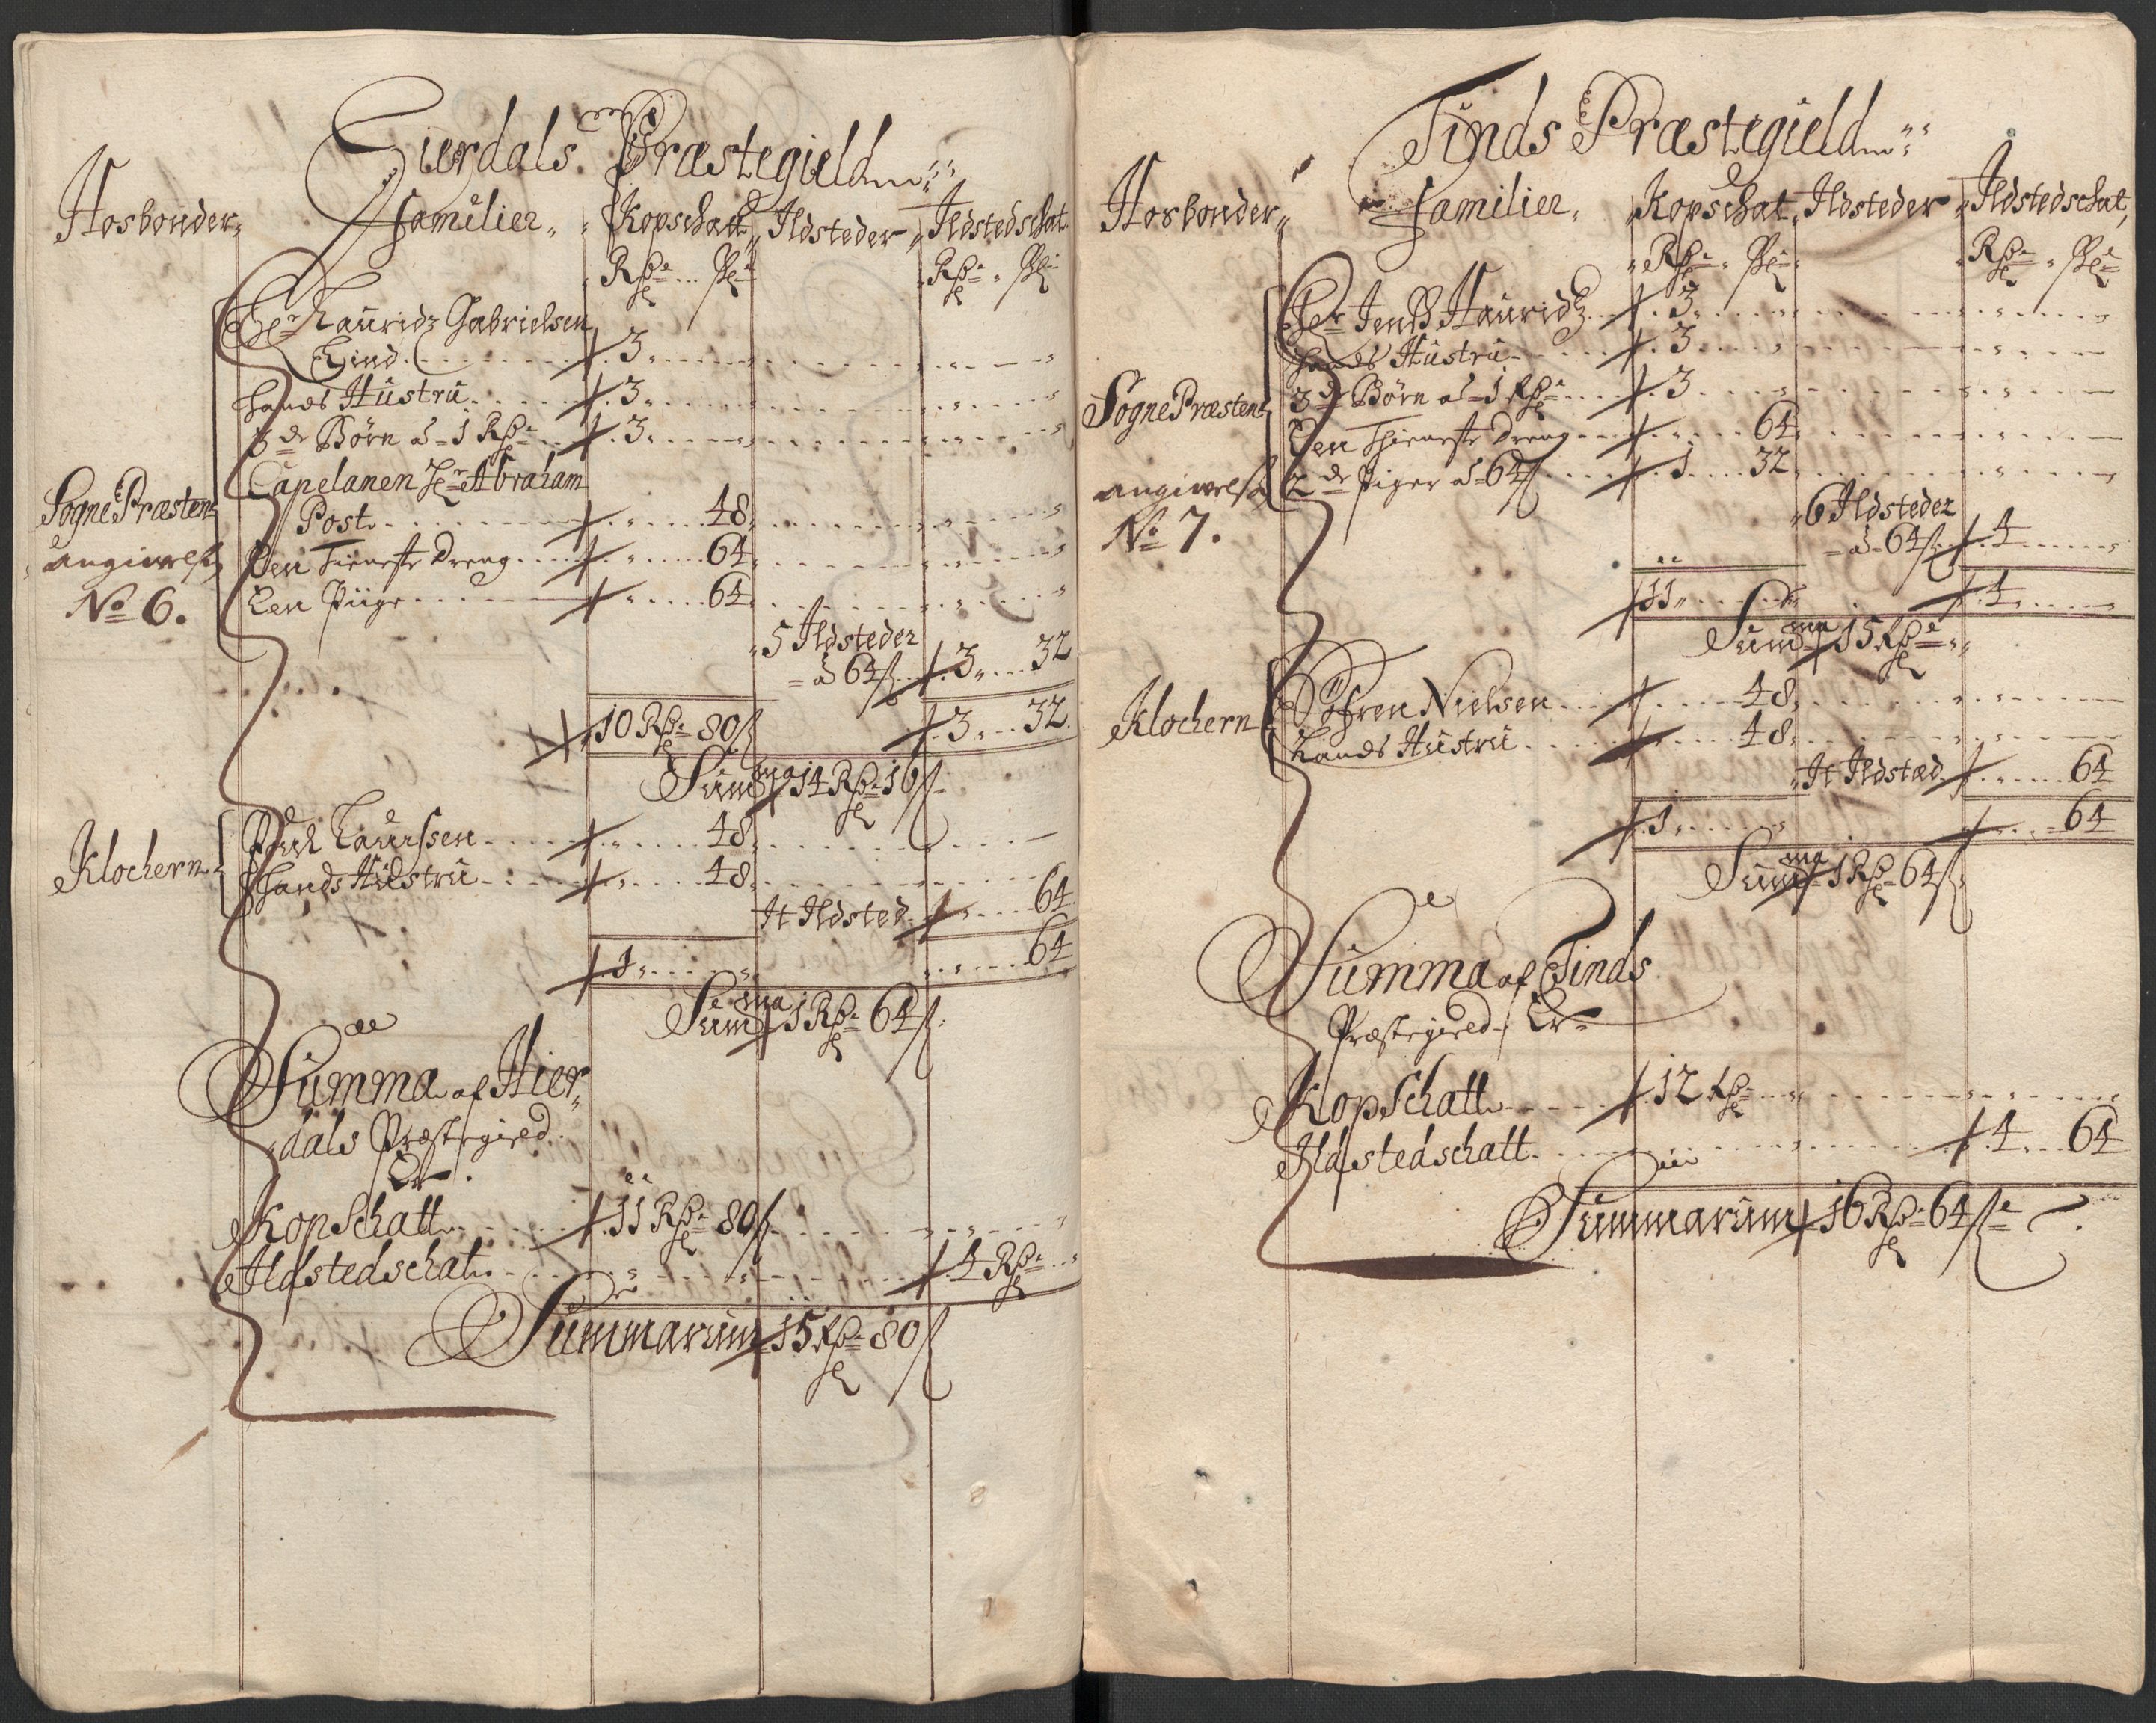 Hierdals Præstegield
Hosbonder, Familier, Kopschatt, Ildsteder, Ildstedschat
Rdr ß Rdr ß
Her Lauridz Gabrielsen
Lind 3
hands Hustru 3
3de Børn a 1 Rdr 3
Capelanen Hr Abraham
Post 48
Een Tieneste Dreng 64
Een Piige 64
Sogne Præstens
angivelse
No 6.
5 Ildsteder
a 64 ß 3 32
10 Rdr 80 ß 3 32
Summa 14 Rdr 16 ß
Klockern
Poul Laurssen 48
Hands Hustru 48
It Ildsted 64
1 64
Summa 1 Rdr 64 ß
Summa af Hier-
dals Præstegield
Er
Kopschatt 11 Rdr 80 ß
Ildstedschat 4 Rdr
Summarum 15 Rdr 80 ß
Tinds Præstegield
Hosbonder, Familier, Kopschat, Ildsteder, Ildstedschat,
Rdr ß Rdr ß
Her Jenß Lauridz 3
hands Hustru 3
3de Børn a 1 Rdr 3
Een Thieneste Dreng 64
2de Piger a 64 ß 1 32
Sogne Præstens
angivelse
No 7.
6 Ildsteder
a 64 ß 4
11 4
Summa 15 Rdr
Klockern
Søfren Nielsen 48
Hands Hustru 48
It Ildstæd 64
1 64
Summa 1 Rdr 64 ß
Summa af Tinds
Præstegield Er
Kopschatt 12 Rdr
Ildstedschatt 4 64
Summarum 16 Rdr 64 ß